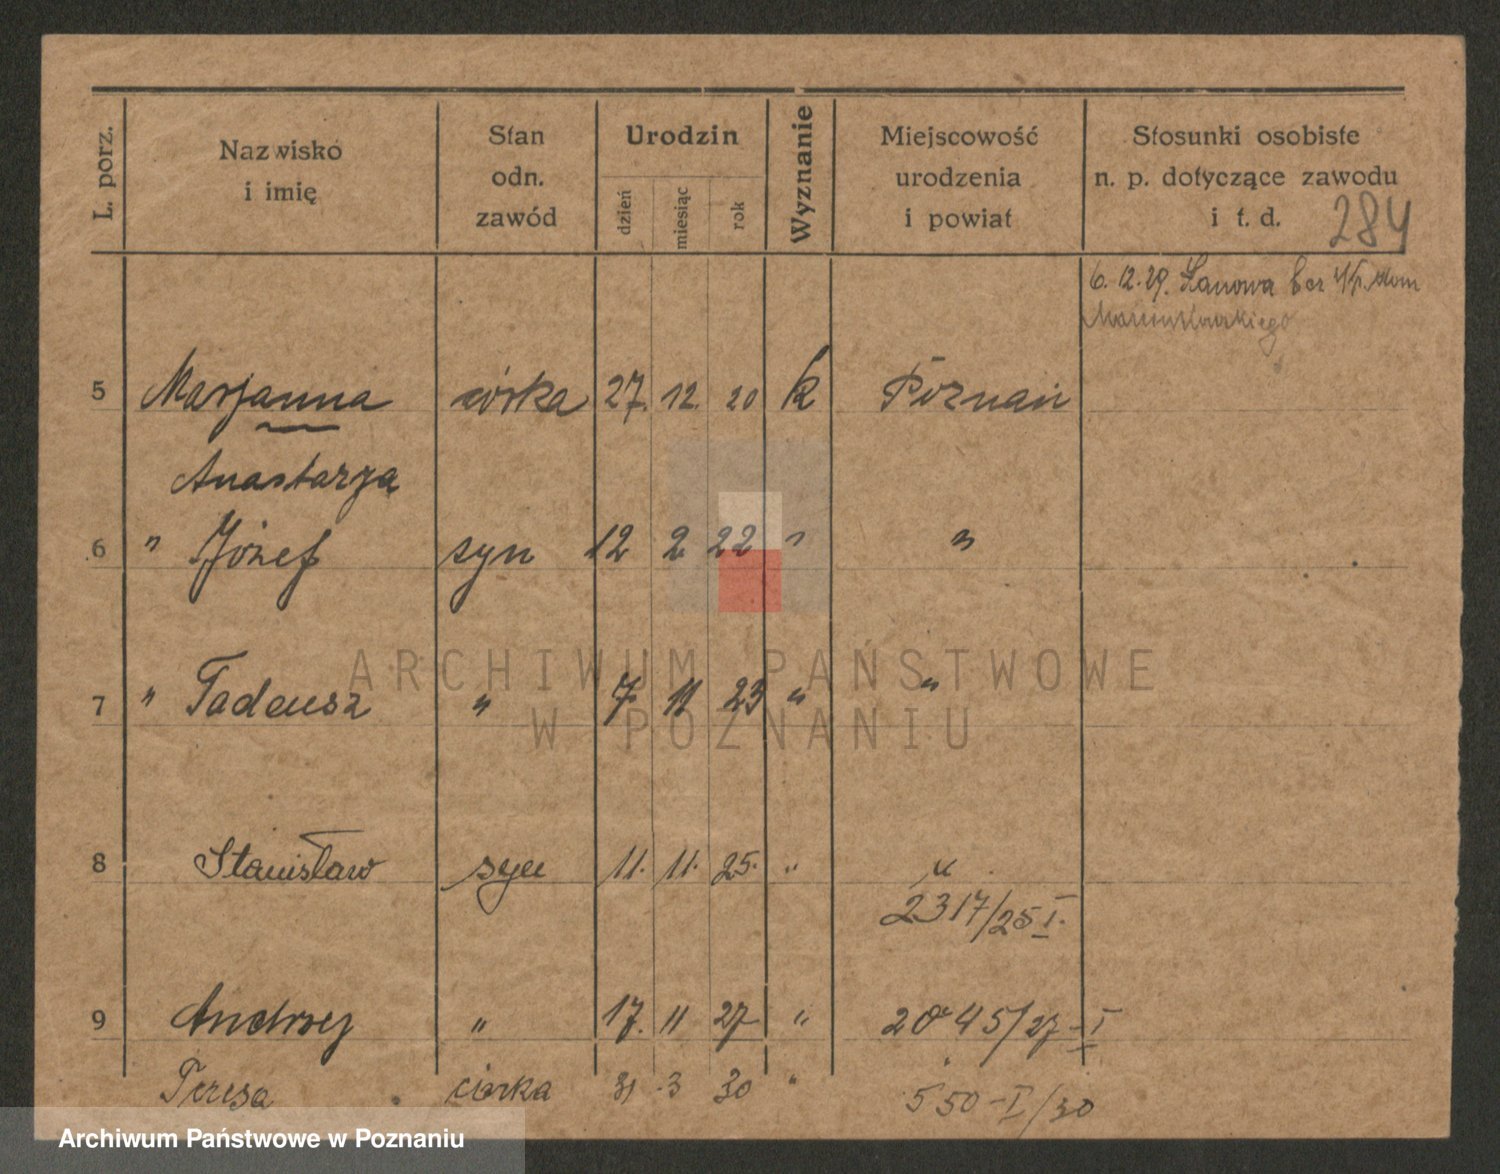 L. porz.
Nazwisko
i imię
Stan
odn.
zawód
Urodzin
dzień
miesiąc
rok
Wyznanie
Miejscowość
urodzenia
i powiat
Stosunki osobiste
n. p. dotyczące zawodu
i t. d.
284
6. 12. 29. Łanowa bez dom
5 Marjanna córka 27. 12. 20 k Poznań
Anastazya
6 " Józef syn 12 2 22 " "
ARCHIWUM PAŃSTWOWE
7 " Tadeusz " 7 11 23 " "
W POZNANIU
8 Stanisław syn 11. 11. 25. " "
2317/25 I.
9 Andrzej " 17. 11 27 " 2045/27-I
Teresa córka 31 3 30 " 550-I/30
Archiwum Państwowe w Poznaniu